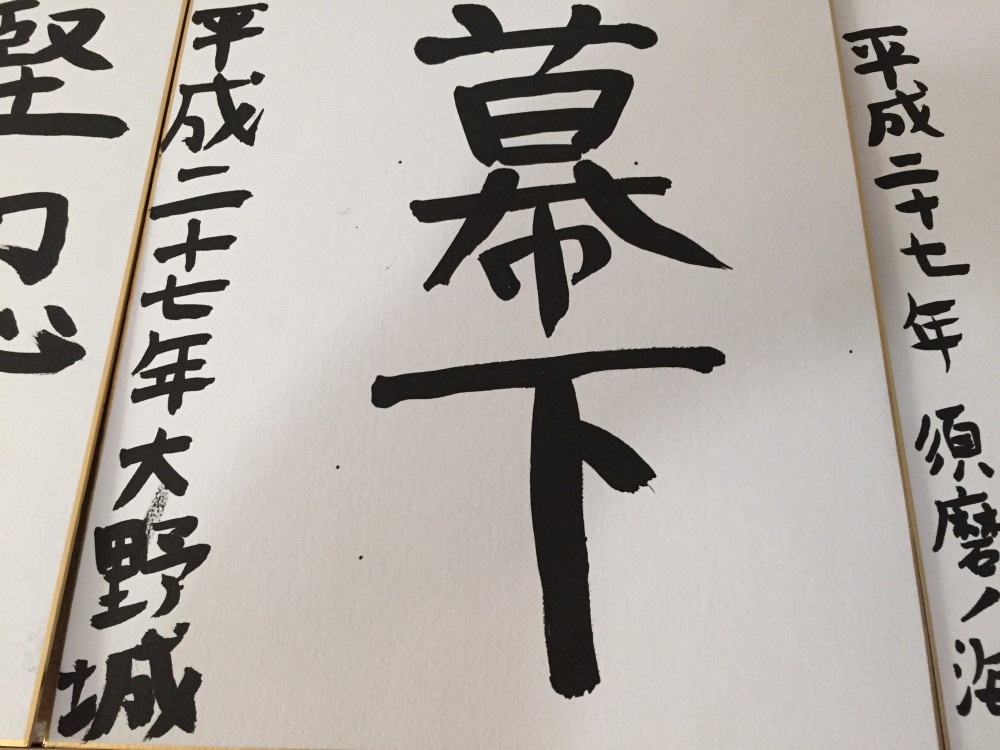 平成二十七年 須磨ノ海
幕下
平成二十七年 大野城
堅忍